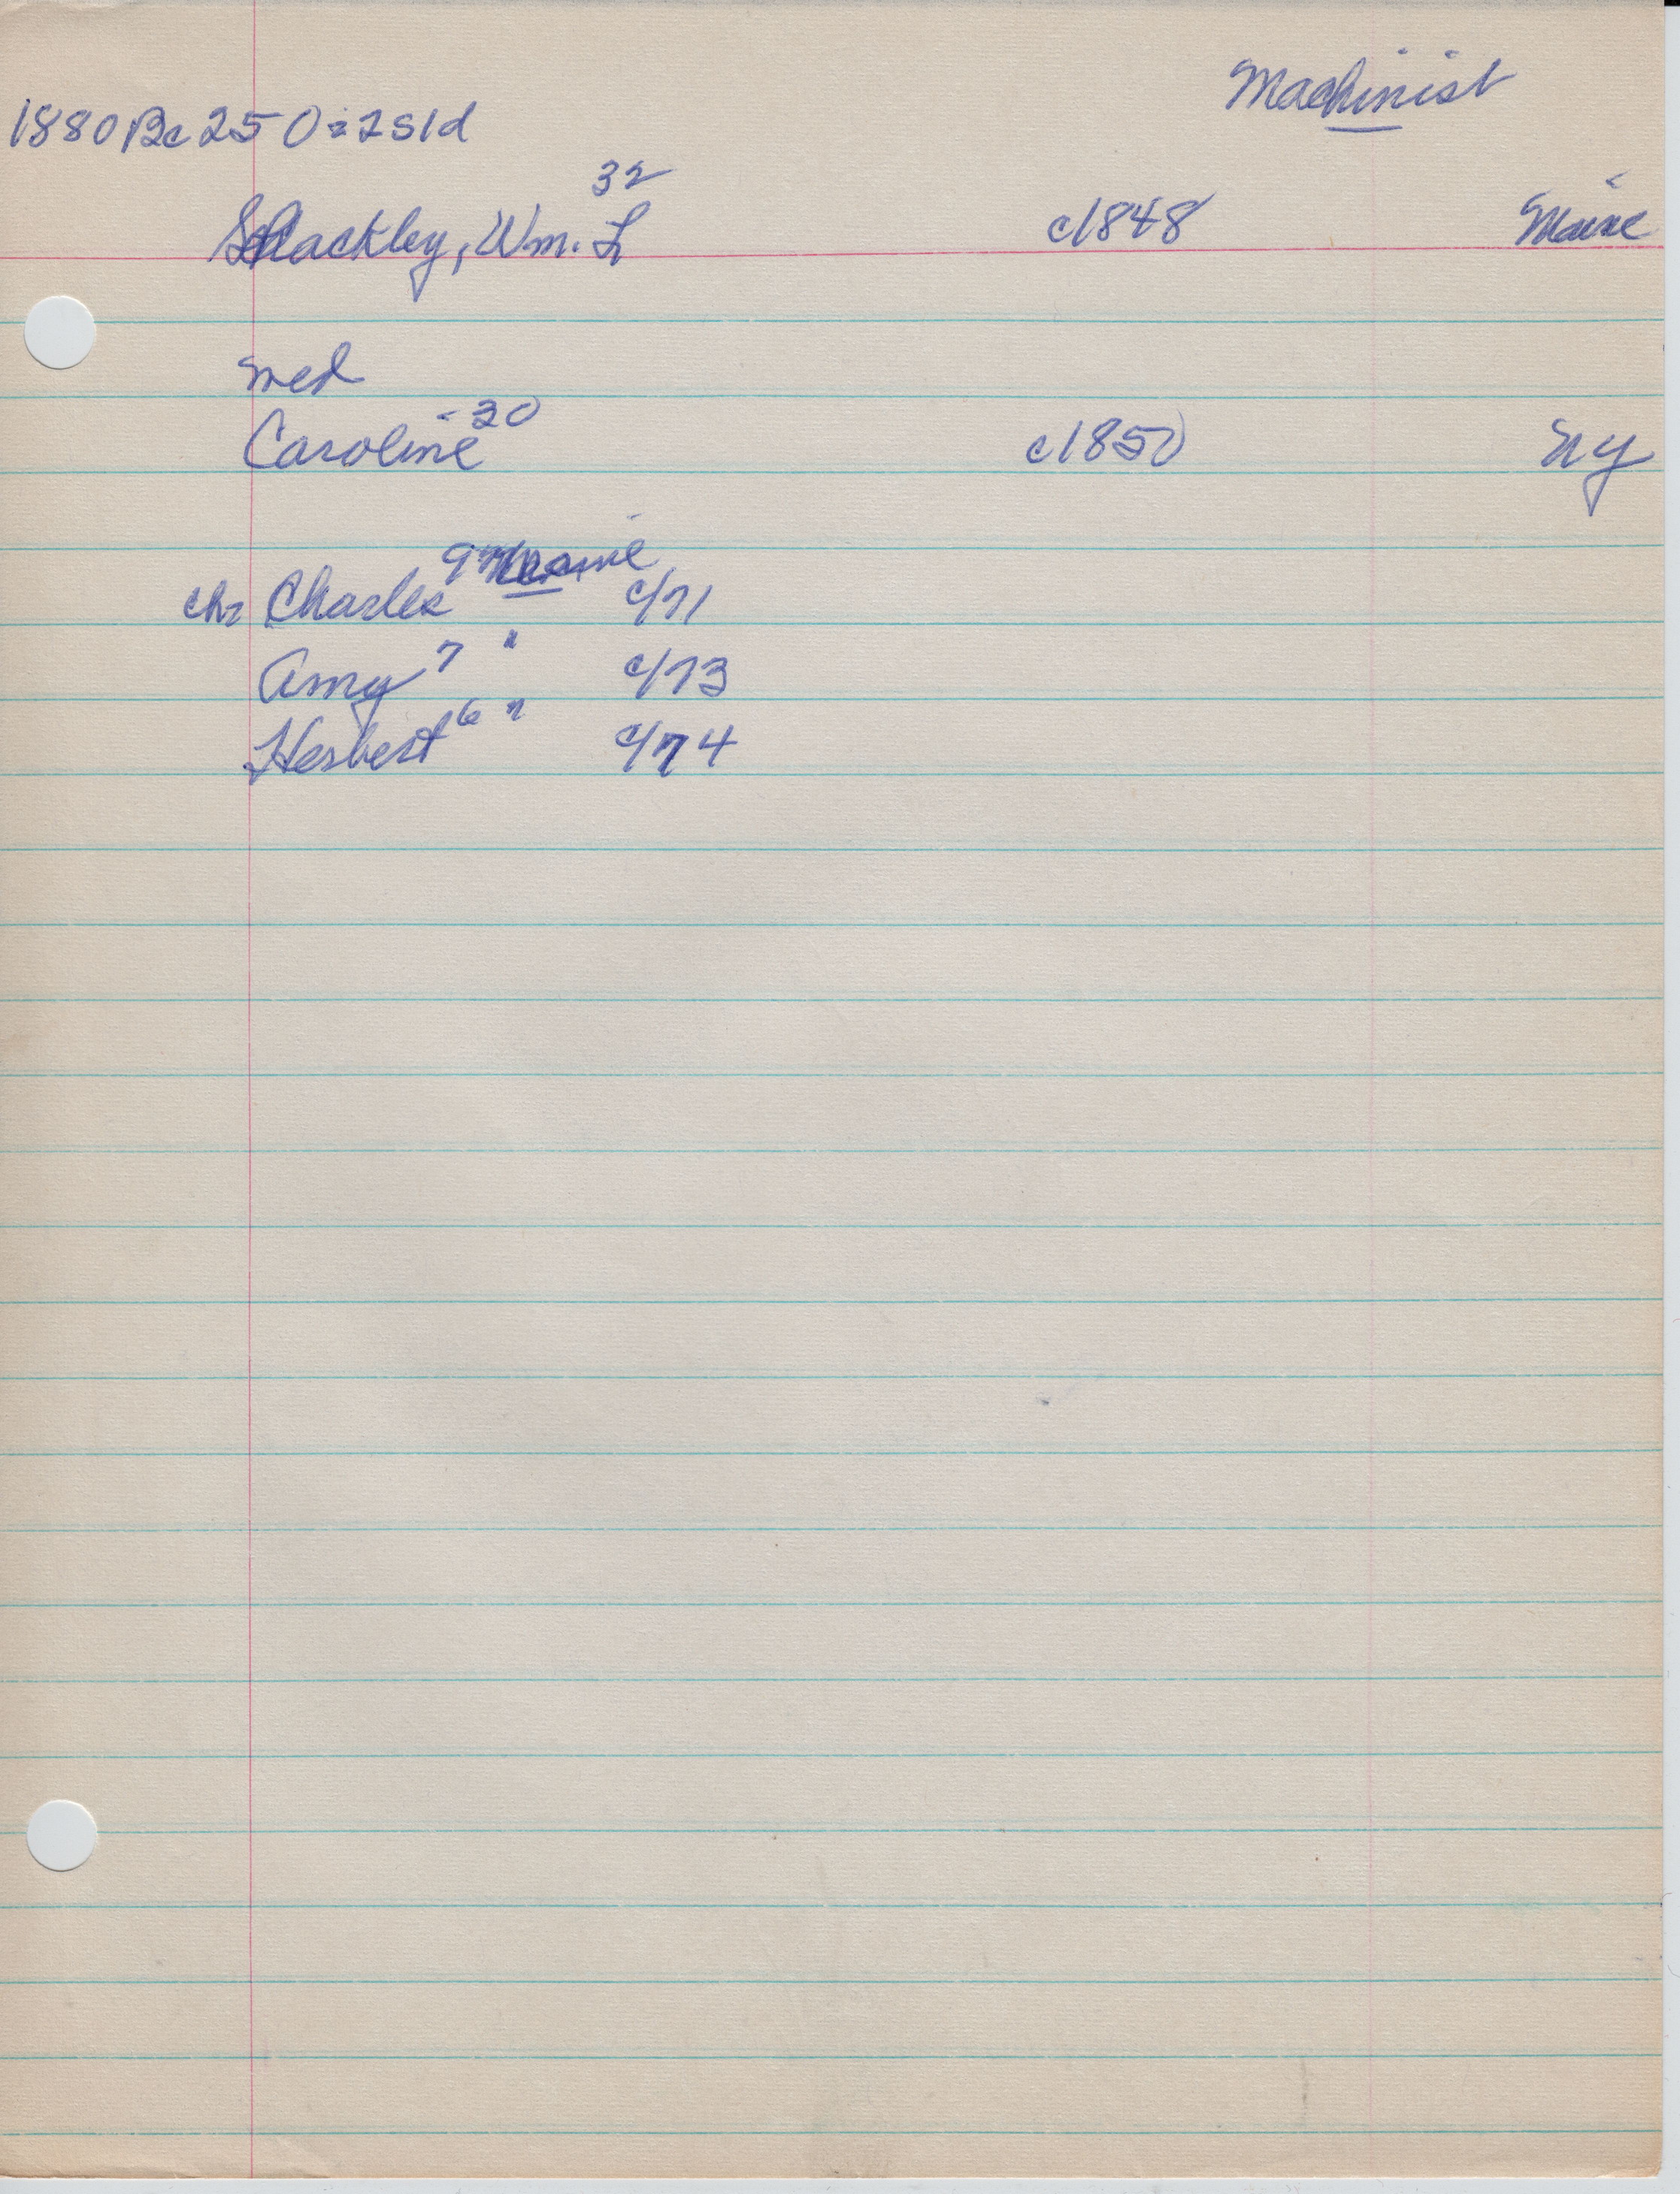 Machinist
1880 Bc 250=2s1d
32
Shackley, Wm. L c1848 Maine
med
30
Caroline c1850 NY
9 Maine
chr Charles c/71
Amy 7 " c/73
Herbert 6 " c/74